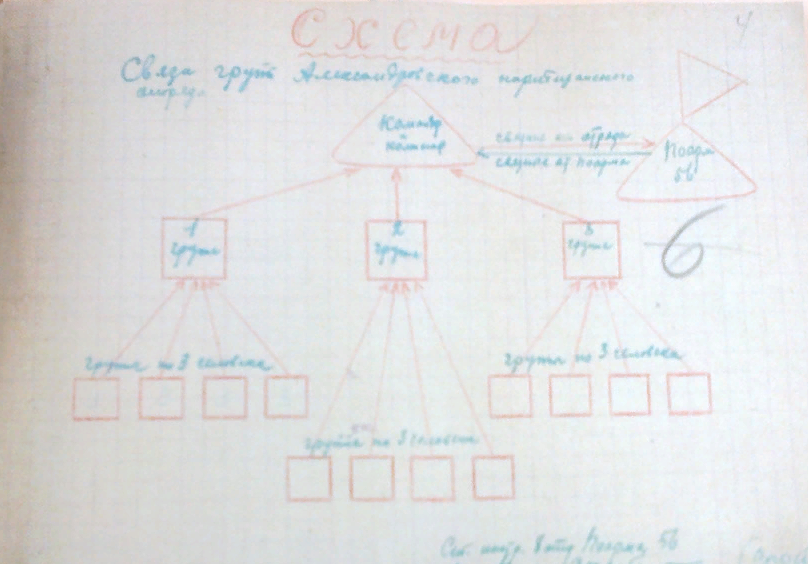 4
Схема
Связи групп Александровского партизанского
отряда
Командир
и
комиссар
связные из отряда
связные от Поарма
Поарм
56
1
группа
2
группа
3
группа
6
группы по 3 человека
группы по 3 человека
группы по 3 человека
Поарма 56